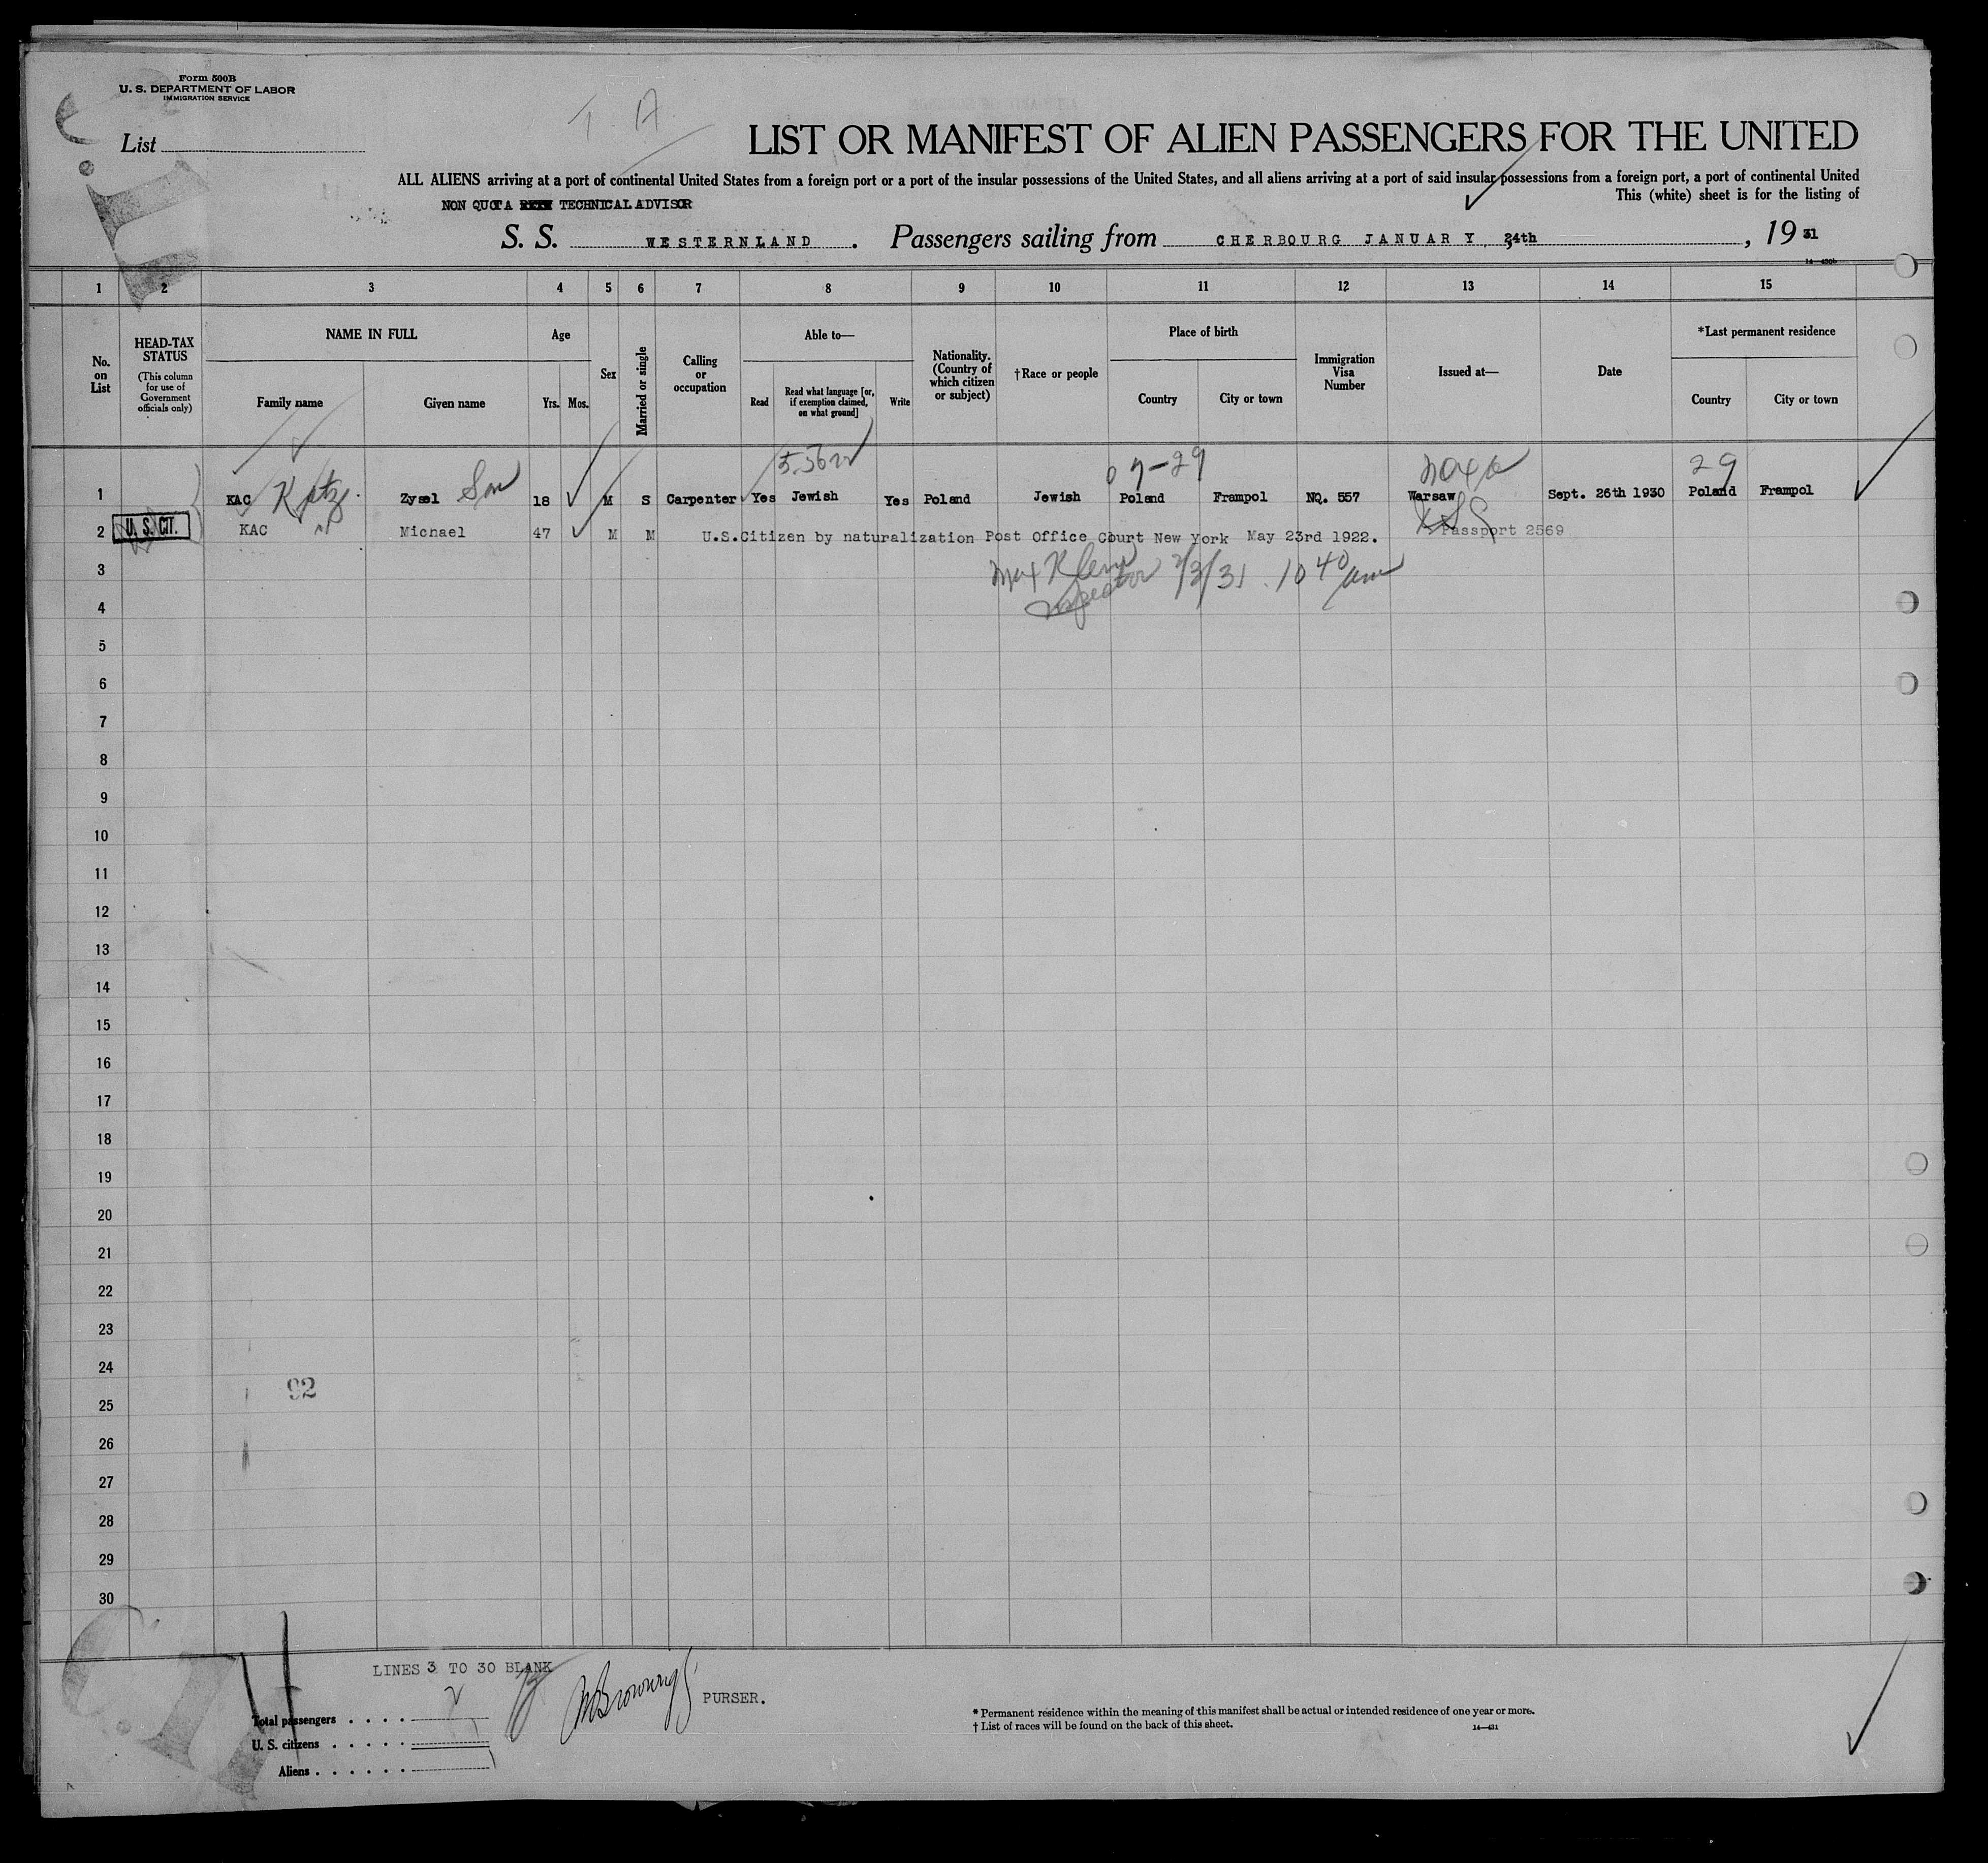 Form 500B
U. S. DEPARTMENT OF LABOR
IMMIGRATION SERVICE
T. A.
List
LIST OR MANIFEST OF ALIEN PASSENGERS FOR THE UNITED
ALL ALIENS arriving at a port of continental United States from a foreign port or a port of the insular possessions of the United States, and all aliens arriving at a port of said insular possessions from a foreign port, a port of continental United
NON QUOTA TECHNICAL ADVISOR
This (white) sheet is for the listing of
S. S. WESTERNLAND . Passengers sailing from CHERBOURG JANUARY, 24th, 19 31
14—430b
1 2 3 4 5 6 7 8 9 10 11 12 13 14 15
No. on List
HEAD-TAX STATUS
(This column for use of Government officials only)
NAME IN FULL
Family name Given name
Age
Yrs. Mos.
Sex
Married or single
Calling or occupation
Able to—
Read
Read what language [or, if exemption claimed, on what ground]
Write
Nationality. (Country of which citizen or subject)
†Race or people
Place of birth
Country City or town
Immigration Visa Number
Issued at—
Date
*Last permanent residence
Country City or town
07-29 29
1 KAC Katz Zysel Son 18 M S Carpenter Yes Jewish Yes Poland Jewish Poland Frampol NQ. 557 Warsaw Sept. 26th 1930 Poland Frampol
2 U. S. CIT. KAC Michael 47 M M U.S.Citizen by naturalization Post Office Court New York May 23rd 1922. Passport 2569
3 Max 2/3/31 10 40 am
Inspector
4
5
6
7
8
9
10
11
12
13
14
15
16
17
18
19
20
21
22
23
24
92
25
26
27
28
29
30
LINES 3 TO 30 BLANK
PURSER.
Total passengers . . . . 2
U. S. citizens . . . . .
Aliens . . . . . .
* Permanent residence within the meaning of this manifest shall be actual or intended residence of one year or more.
† List of races will be found on the back of this sheet.
14—431